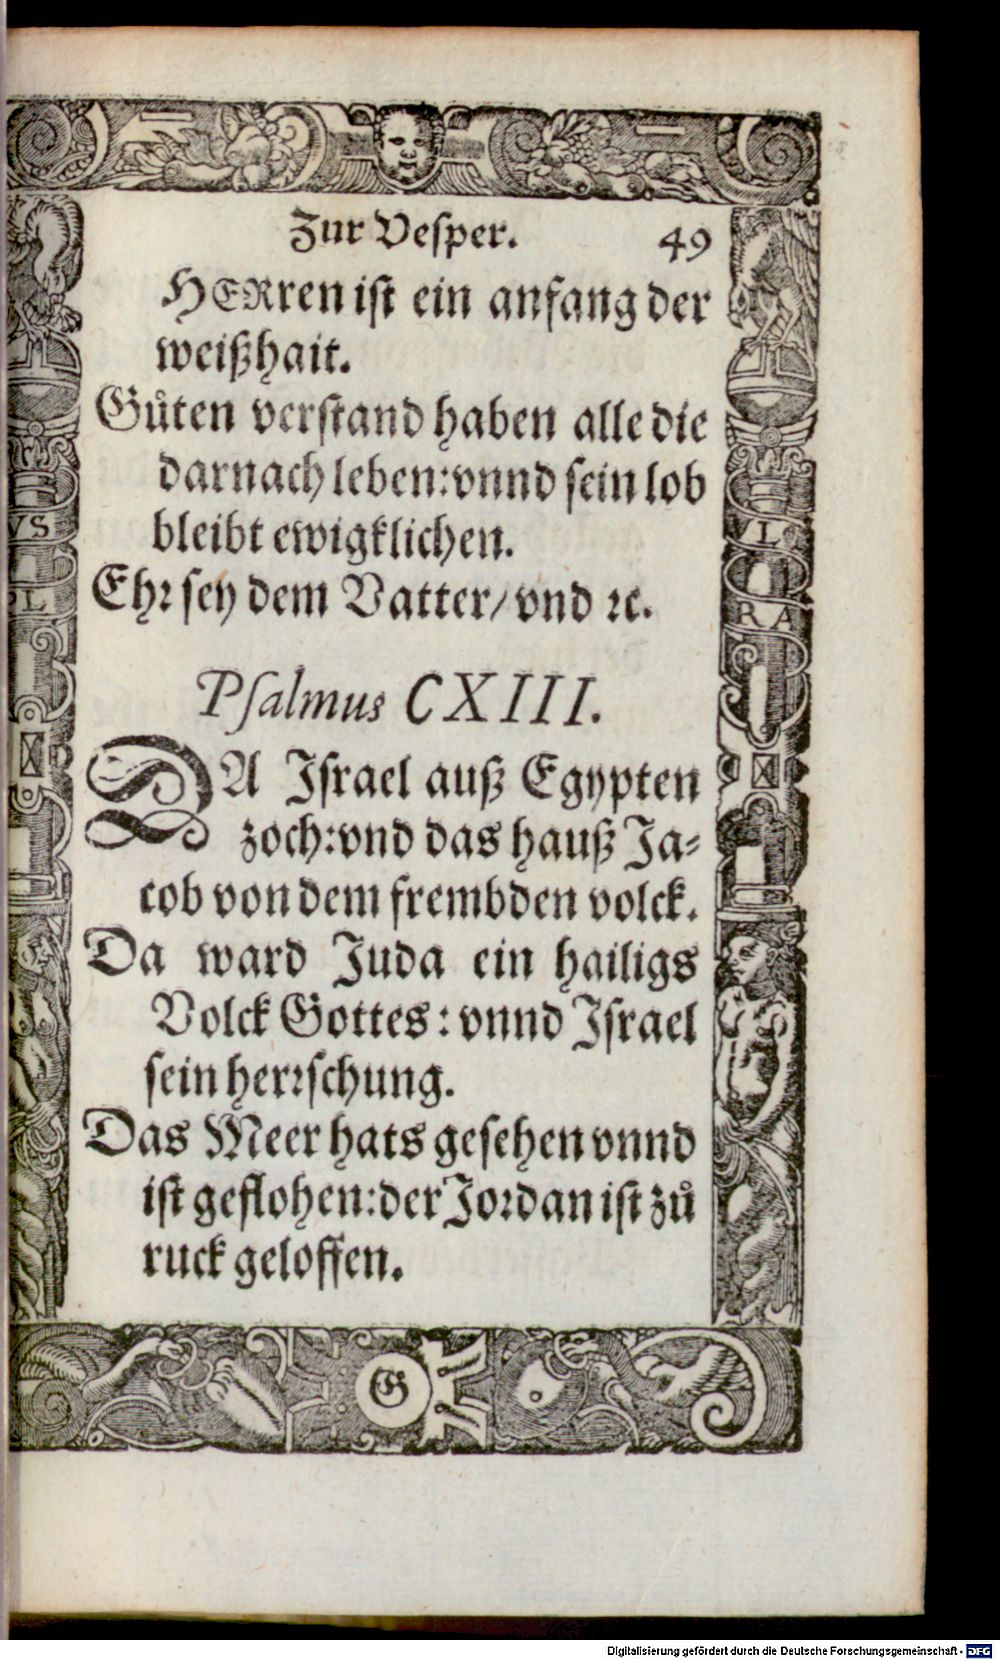 Zur Vesper. 49
HERren ist ein anfang der
weißhait.
Gůten verstand haben alle die
darnach leben: vnnd sein lob
bleibt ewigklichen.
Ehr sey dem Vatter/ vnd ꝛc.
Psalmus CXIII.
DA Israel auß Egypten
zoch: vnd das hauß Ja⸗
cob von dem frembden volck.
Da ward Juda ein hailigs
Volck Gottes: vnnd Israel
sein herrschung.
Das Meer hats gesehen vnnd
ist geflohen: der Jordan ist zů
ruck geloffen.
VS
VL
RA
G
Digitalisierung gefördert durch die Deutsche Forschungsgemeinschaft - DFG